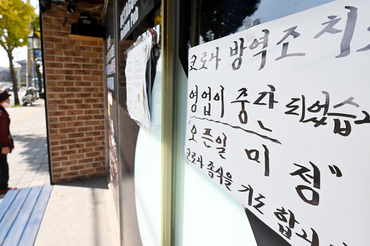 코로나 방역조치
영업이 중단 되었습
"오픈일 미정"
코로나 종식을 기도 합시